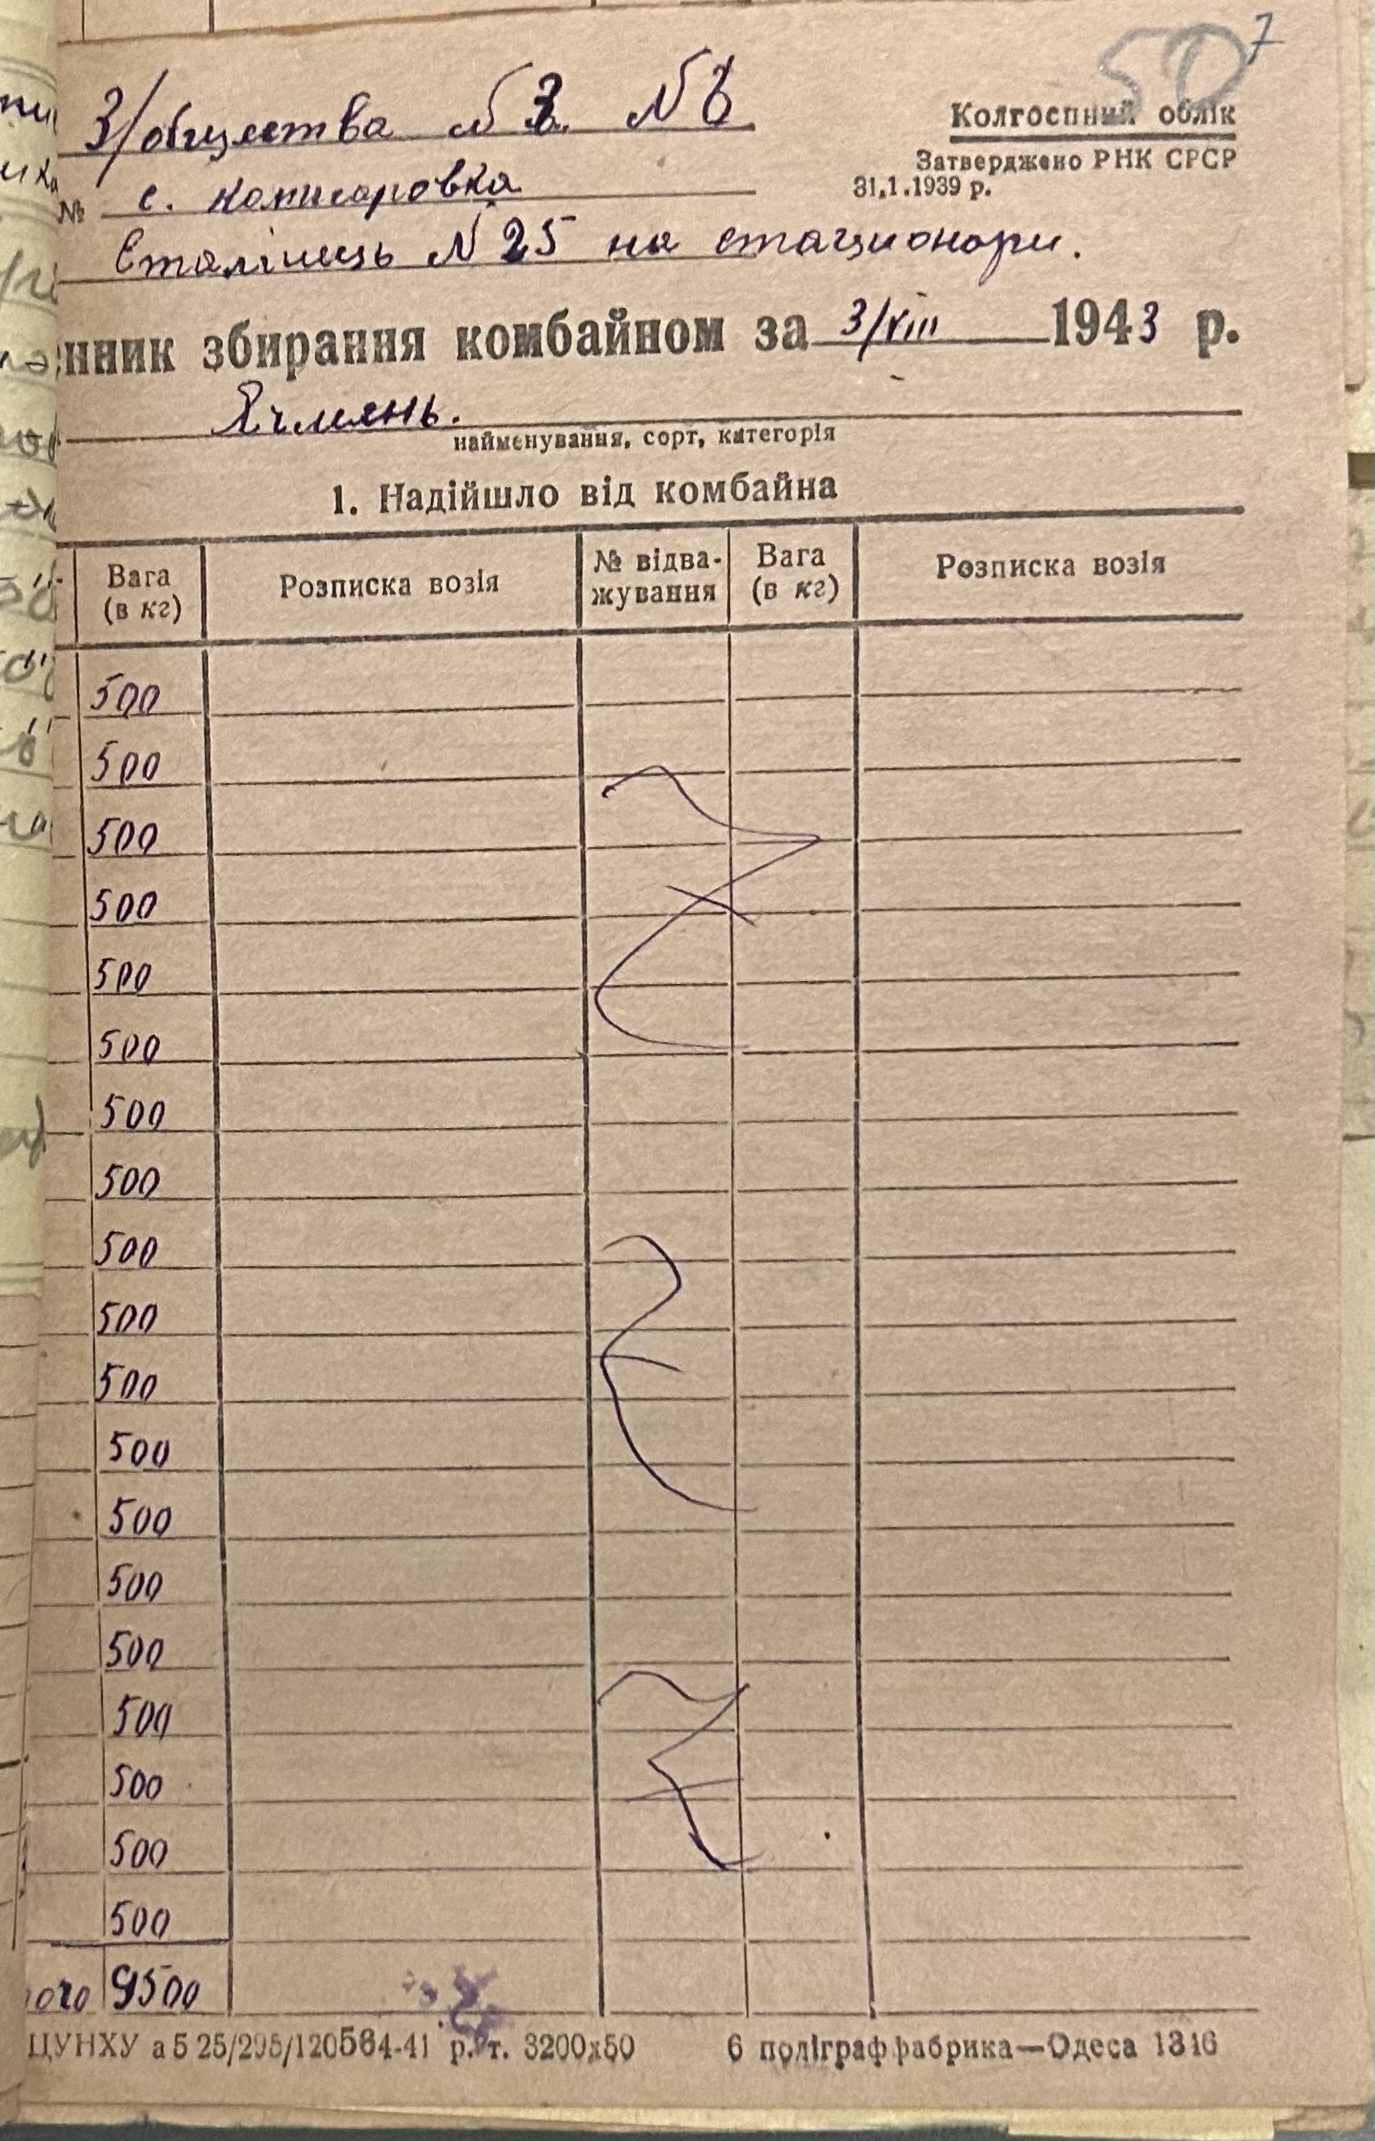 50 7
З/общества № 3. № 6
Колгоспний облік
Затверджено РНК СРСР
31.1.1939 р.
№ с. комисаровка
Сталінець № 25 на стационари.
нник збирання комбайном за 3/VIII 1943 р.
Ячмянь.
найменування, сорт, категорія
1. Надійшло від комбайна
Вага (в кг) Розписка возія № відва-жування Вага (в кг) Розписка возія
500
500
500
500
500
500
500
500
500
500
500
500
500
500
500
500
500
500
500
ого 9500
ЦУНХУ а 5 25/295/120564-41 р. т. 3200х50 6 поліграффабрика—Одеса 1346